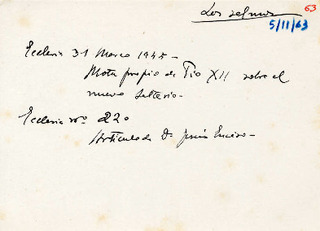 Los salmos
63
5/11/63
Ecclesia 31 Marzo 1945 -
Motu proprio de Pío XII sobre el
nuevo salterio -
Ecclesia nº 220
Artículo de D. Jesús Enciso -